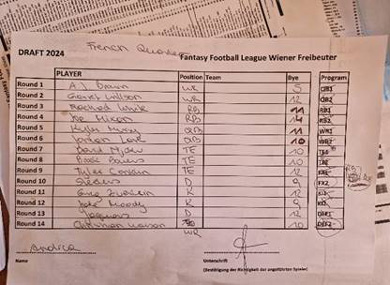 DRAFT 2024
French
Fantasy Football League Wiener Freibeuter
PLAYER Position Team Bye Program
Round 1 A.J. Brown WR 5 QB1
Round 2 Garret Wilson WR 12 QB2
Round 3 Rachaad White RB 11 RB1
Round 4 Joe Mixon RB 14 RB2
Round 5 Kyler Murray QB 11 WR1
Round 6 Jordan Love QB 10 WR2
Round 7 David Njoku TE 10
Round 8 Brock Bowers TE 10
Round 9 Tyler Conklin TE 12
Round 10 D 9 FX2
Round 11 K 12
Round 12 Jake Moody K 9
Round 13 Jaguars D 12 DEF1
Round 14 Christian Watson WR 10 DEF2
Andrea
Name
Unterschrift
(Bestätigung der Richtigkeit der angeführten Spieler)